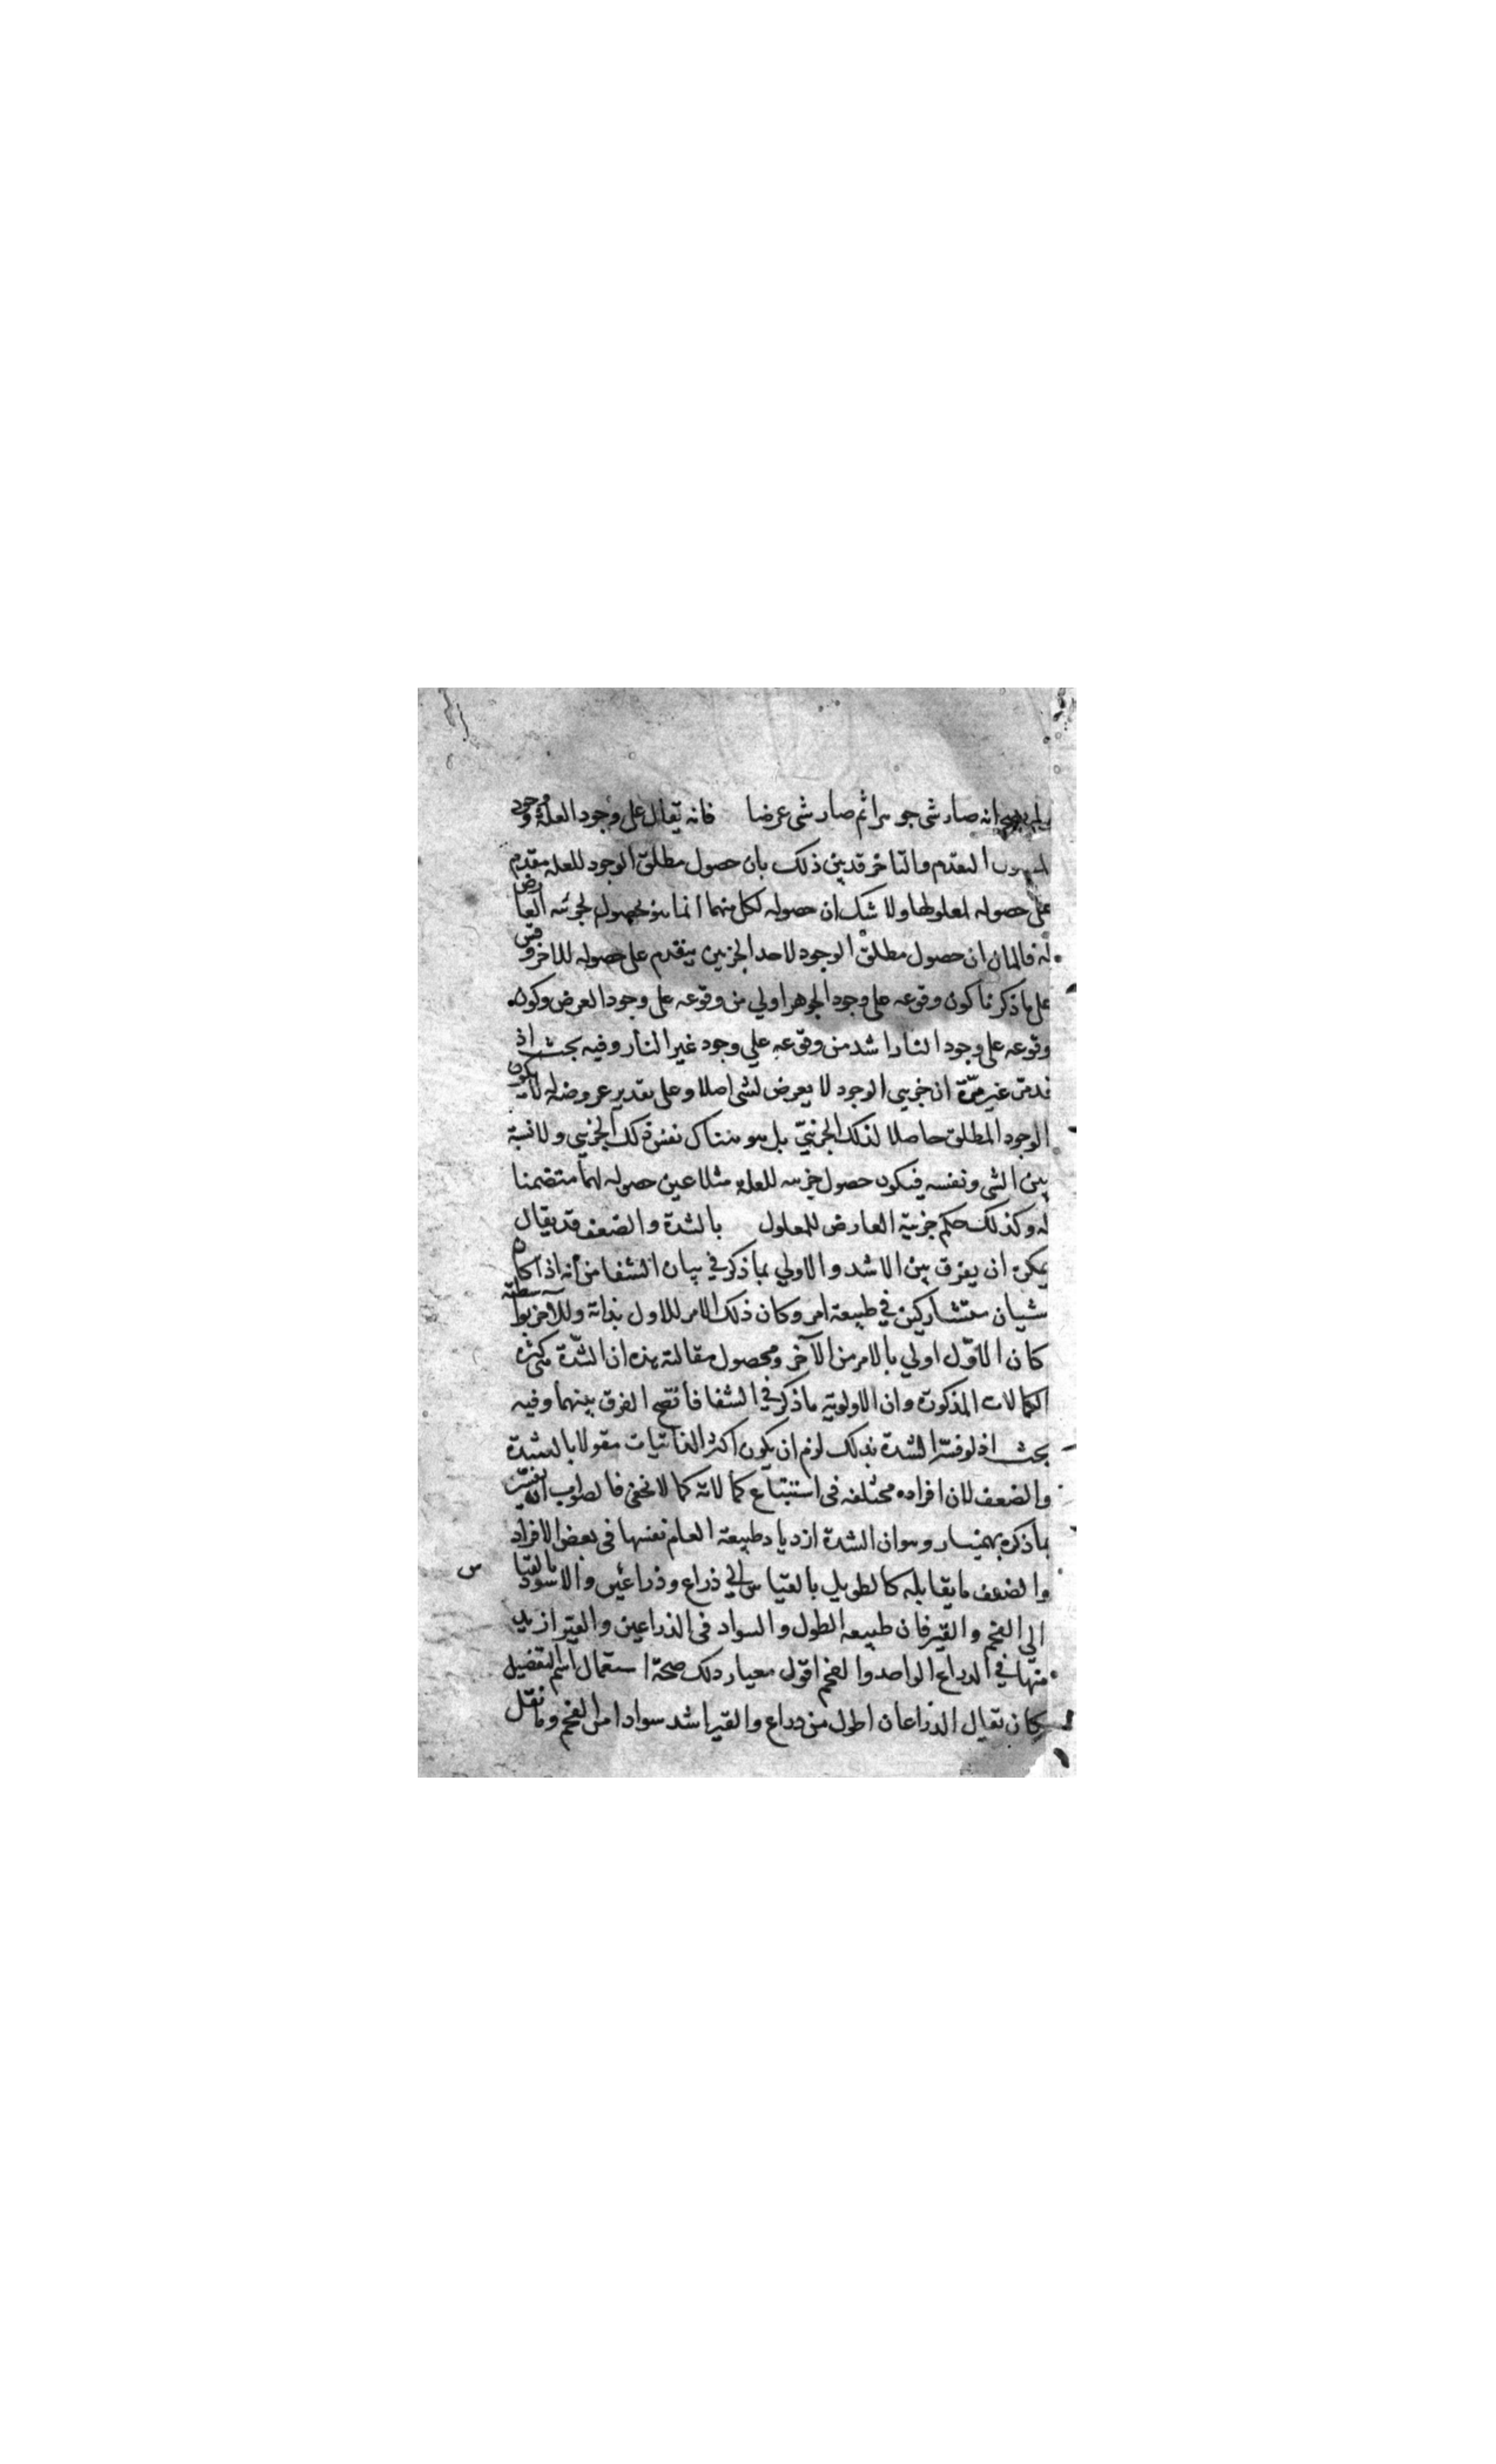 انه صار شى جوهرا ثم صار شى عرضا فانه يقال على وجود العلة ووجود
التقدم والتاخر قد بين ذلك بان حصول مطلق الوجود للعله مقدم
على حصوله لمعلولها ولا شك ان حصوله لكل منهما انما هو بحصول لجزئيه العارض
له فالمان ان حصول مطلق الوجود لاحد الجزئين يتقدم على حصوله للاخر وقس
على ما ذكرنا كون وقوعه على وجود الجوهر اولي من وقوعه على وجود العرض وكون
وقوعه على وجود النار اشد من وقوعه علي وجود غير النار وفيه بحث اذ
قد مر غير مرة ان جزيى الوجود لا يعرض لشى اصلا وعلى تقدير عروضه له لا يكون
الوجود المطلق حاصلا لذلك الجزئيّ بل هو هناك نفس ذلك الجزيي ولا نسبة
بين الشى ونفسه فيكون حصول جزييه للعلة مثلا عين حصوله لها متضمنا
له وكذلك حكم جزيية العارض للمعلول بالشدة والضعف قد يقال
يمكن ان يفرق بين الاشد والاولي بما ذكر في بيان الشفا من انه اذا كان
شيان متشاركين في طبيعة امر وكان ذلك الامر للاول بذاته وللاخر بواسطته
كان الاوّل اولي بالامر من الآخر ومحصول مقالته هذه ان الشدّة هى كثرة
الكمالات المذكورة وان الاولوية ما ذكر في الشفا فاتضح الفرق بينهما وفيه
بحث اذ لو فسّر الشدة بذلك لزم ان يكون اكثر الذاتيات مقولا بالشدة
والضعف لان افراده مختلفه فى استتباع كمالاته كما لا يخفى فالصواب ان يفسّر
بما ذكره بهمنيار وهو ان الشدة ازدياد طبيعة العام نفسها فى بعض الافراد
والضعف ما يقابله كالطويل بالقياس الي ذراع وذراعين والاسود بالقياس
الى الفحم والقير فان طبيعه الطول والسواد فى الذراعين والقير ازيد
منها في الدراع الواحد والفحم اقول معيار دلك صحة استعمال اسم التفضيل
كان يقال الذراعان اطول من دراع والقير اشد سوادا من الفحم وما نقل